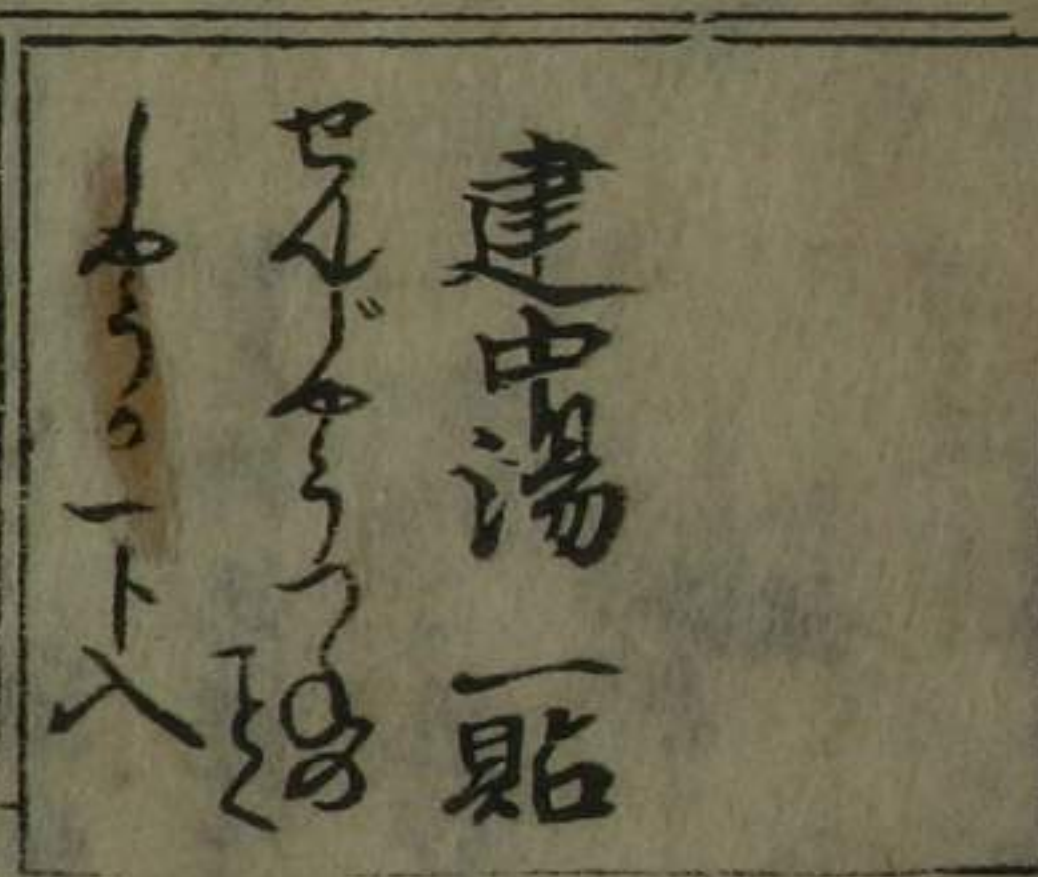 建中湯 一貼
せんじやうつねの
ごとく
しやうが一ト入